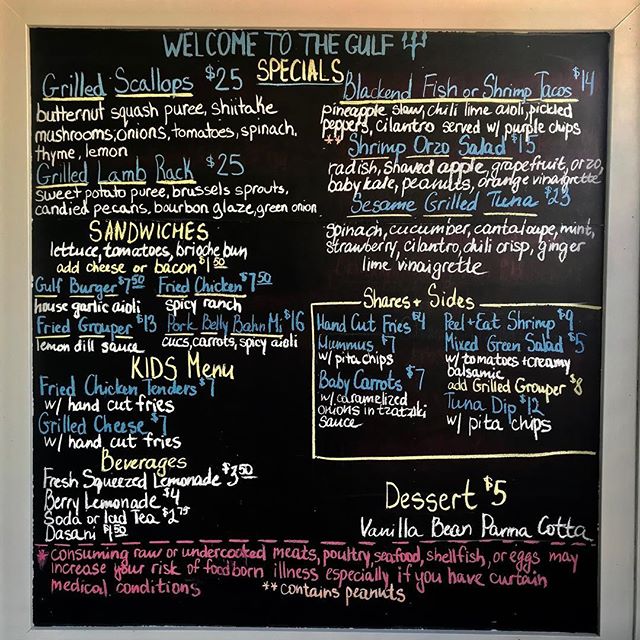 WELCOME TO THE GULF
SPECIALS
Grilled Scallops $25
butternut squash puree, shiitake
mushrooms, onions, tomatoes, spinach,
thyme, lemon
Grilled Lamb Rack $25
sweet potato puree, brussels sprouts,
candied pecans, bourbon glaze, green onion
Blackend Fish or Shrimp Tacos $14
pineapple slaw, chili lime aioli, pickled
peppers, cilantro served w/ purple chips
** Shrimp Orzo Salad $15
radish, shaved apple, grapefruit, orzo,
baby kale, peanuts, orange vinaigrette
Sesame Grilled Tuna $23
spinach, cucumber, cantaloupe, mint,
strawberry, cilantro, chili crisp, ginger
lime vinaigrette
SANDWICHES
lettuce, tomatoes, brioche bun
add cheese or bacon $1.50
Gulf Burger $7.50 Fried Chicken $7.50
house garlic aioli spicy ranch
Fried Grouper $13 Pork Belly Bahn Mi $16
lemon dill sauce cucs, carrots, spicy aioli
KIDS MENU
Fried Chicken Tenders $7
w/ hand cut fries
Grilled Cheese $7
w/ hand cut fries
Beverages
Fresh Squeezed Lemonade $3.50
Berry Lemonade $4
Soda or Iced Tea $2.75
Dasani $1.50
Shares + Sides
Hand Cut Fries $4
Hummus $7
w/ pita chips
Baby Carrots $7
w/ caramelized
onions in tzatziki
sauce
Peel + Eat Shrimp $9
Mixed Green Salad $5
w/ tomatoes + creamy
balsamic
add Grilled Grouper $8
Tuna Dip $12
w/ pita chips
Dessert $5
Vanilla Bean Panna Cotta
* consuming raw or undercooked meats, poultry, seafood, shellfish, or eggs may
increase your risk of foodborn illness especially if you have curtain
medical conditions
**contains peanuts